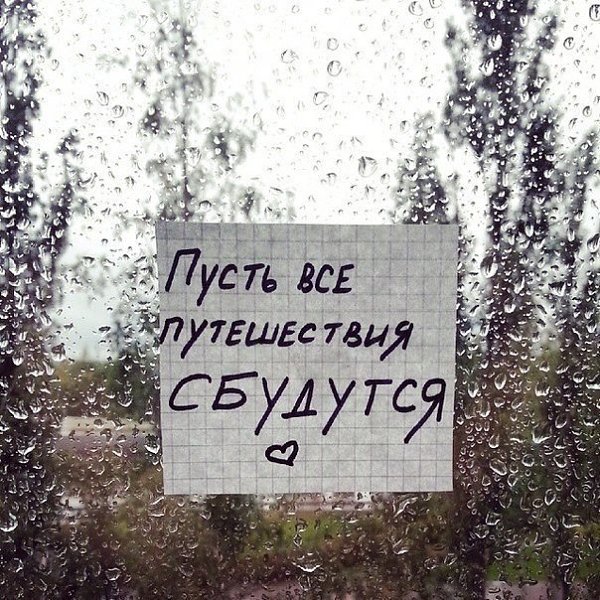 Пусть все
путешествия
сбудутся
♡